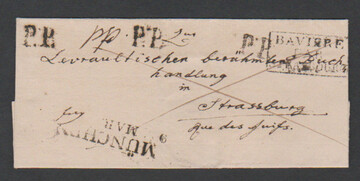 P.P. P.P. P.P. BAVIERE
Levraultischen berühmten Buch
handlung
in
Strassburg
Rue des Juifs.
MÜNCHEN
9 MAR